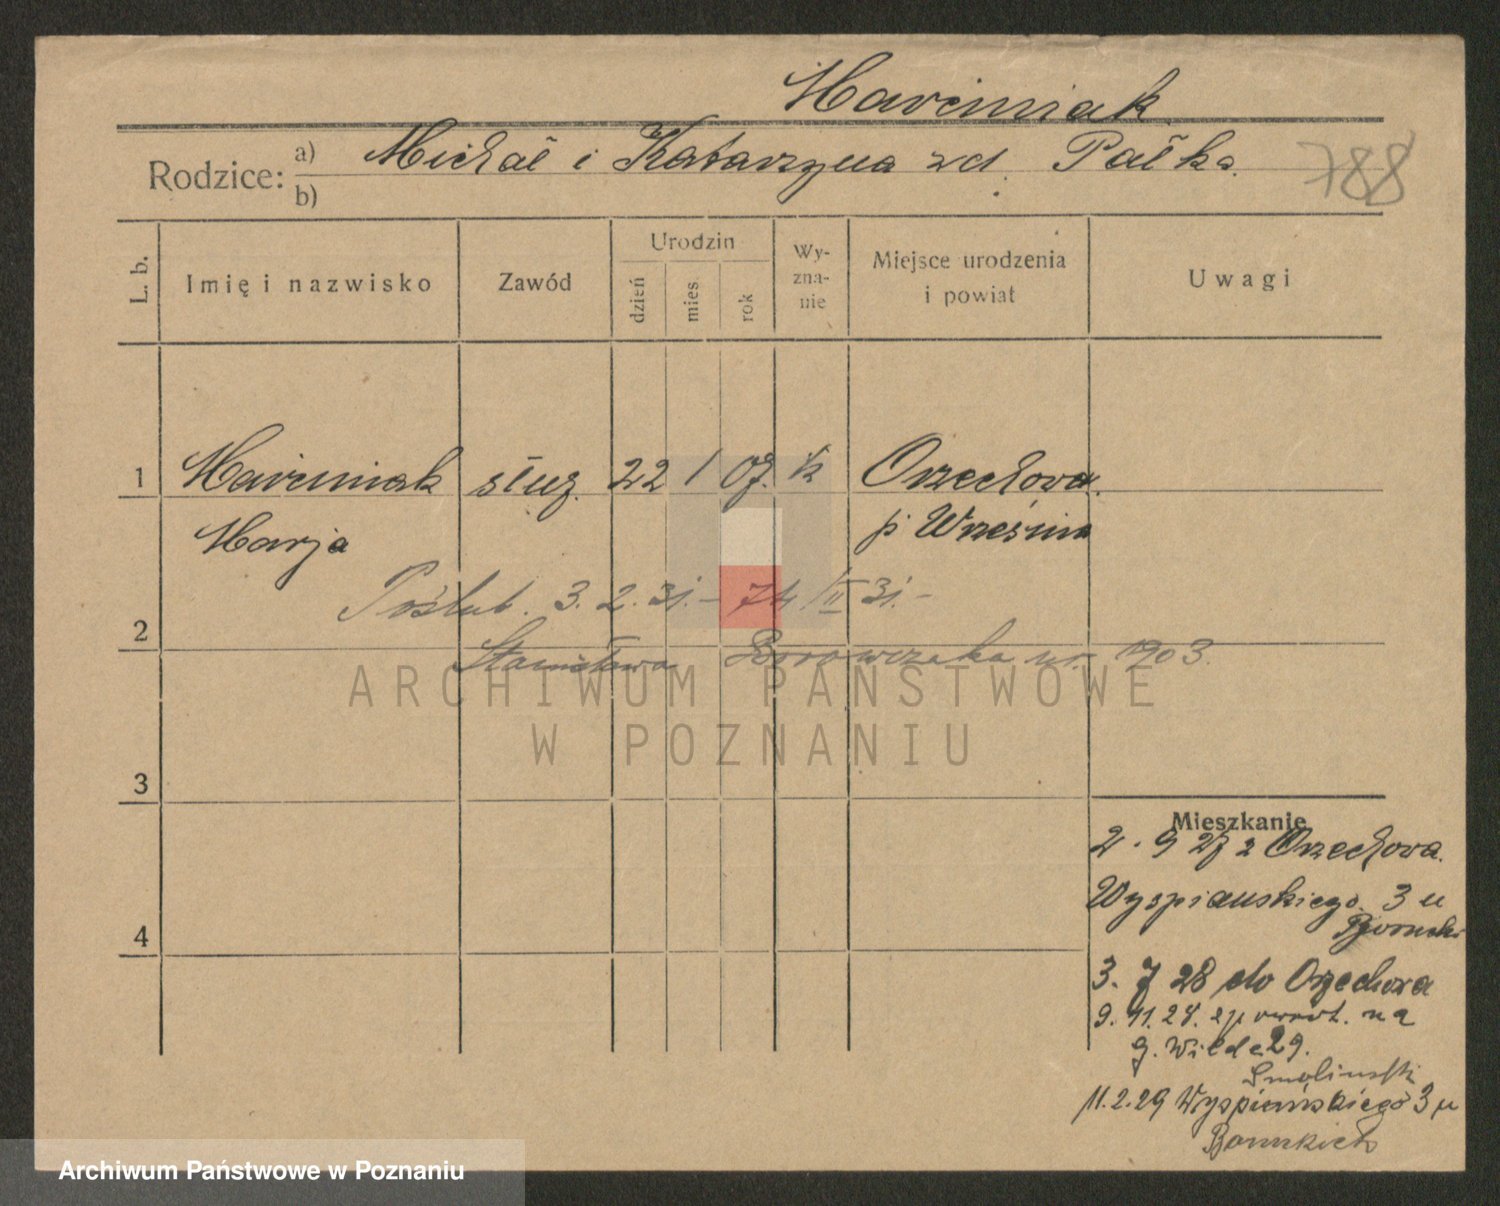 Marciniak
Rodzice: a) Michał i Katarzyna zd. Pałka.
b)
788
L. b.
Imię i nazwisko
Zawód
Urodzin
dzień
mies.
rok
Wy-
zna-
nie
Miejsce urodzenia
i powiat
Uwagi
1 Marciniak służ. 22 1 07. k Orzechowa.
Marja p Września
Poślub. 3.2.31.– 74/II 31.–
2
Stanisława Borowczaka nr. 1203.
ARCHIWUM PAŃSTWOWE
W POZNANIU
3
Mieszkanie
2. 9 27 z Orzechowa.
Wyspiańskiego 3 u
4
3. 7 28 do Orzechowa
9. 11. 28. z powrot. na
g. Wilda 29.
Smoliński
11.2.29 Wyspiańskiego 3 u
Archiwum Państwowe w Poznaniu